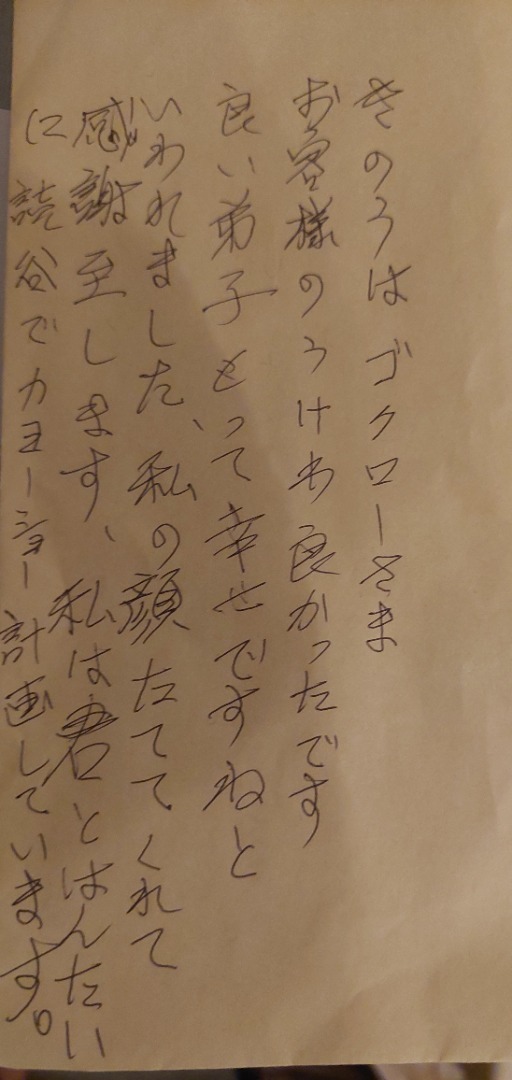 きのうはゴクローさま
お客様のうけわ良かったです
良い弟子もって幸せですねと
いわれました、私の顔たててくれて
感謝至します、私は君とはんたい
に読谷でカヨーショー計画しています。